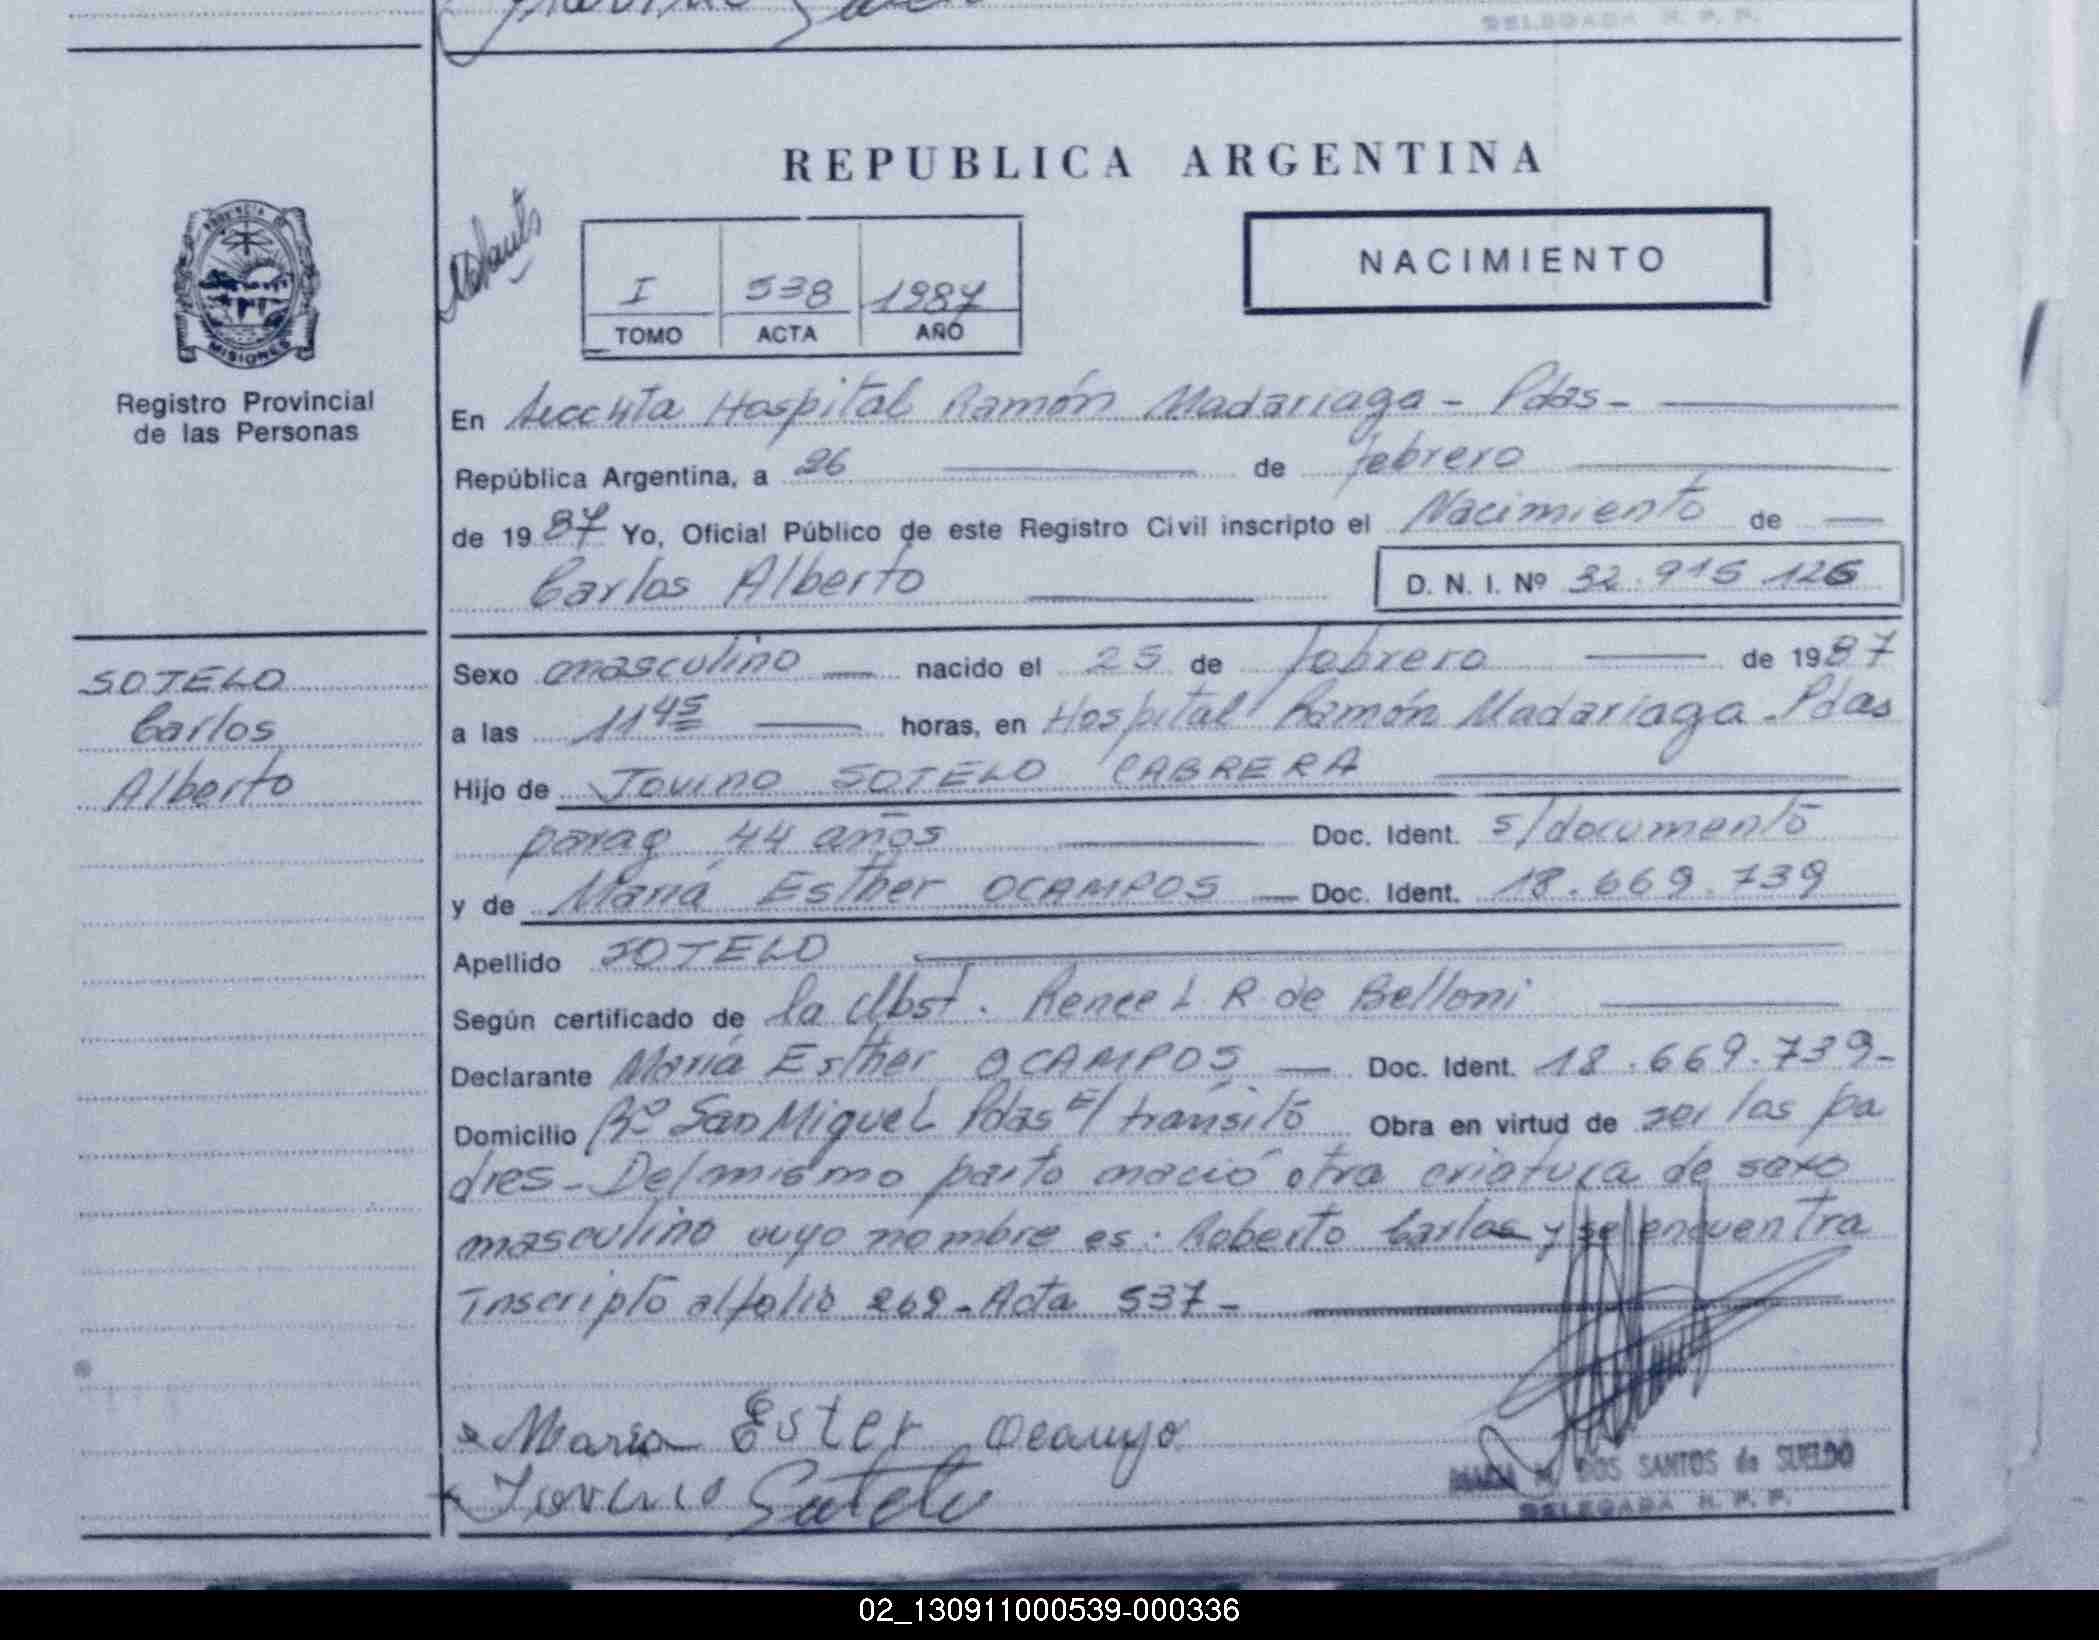 DELEGADA R. P. P.
REPUBLICA ARGENTINA
NACIMIENTO
I 538 1987
TOMO ACTA AÑO
PROVINCIA DE
MISIONES
Registro Provincial
de las Personas
En Secc 4ta Hospital Ramón Madariaga - Pdas -
República Argentina, a 26 de febrero
de 1987 Yo, Oficial Público de este Registro Civil inscripto el Nacimiento de
Carlos Alberto D. N. I. Nº 32.915.126
SOTELO
Carlos
Alberto
Sexo masculino nacido el 25 de febrero de 1987
a las 11 45 horas, en Hospital Ramón Madariaga - Pdas
Hijo de Jovino SOTELO CABRERA
parag 44 años Doc. Ident. s/documento
y de María Esther OCAMPOS Doc. Ident. 18.669.739
Apellido SOTELO
Según certificado de la Obst. Renee L. R. de Belloni
Declarante María Esther OCAMPOS Doc. Ident. 18.669.739-
Domicilio Bº San Miguel Pdas E/ tránsito Obra en virtud de ser los pa
dres - Del mismo parto nació otra criatura de sexo
masculino cuyo nombre es: Roberto Carlos y se encuentra
Inscripto al folio 269 - Acta 537 -
Maria Ester Ocampo
Jovino Sotelo
MARIA M. DOS SANTOS de SUELDO
DELEGADA R. P. P.
02_130911000539-000336